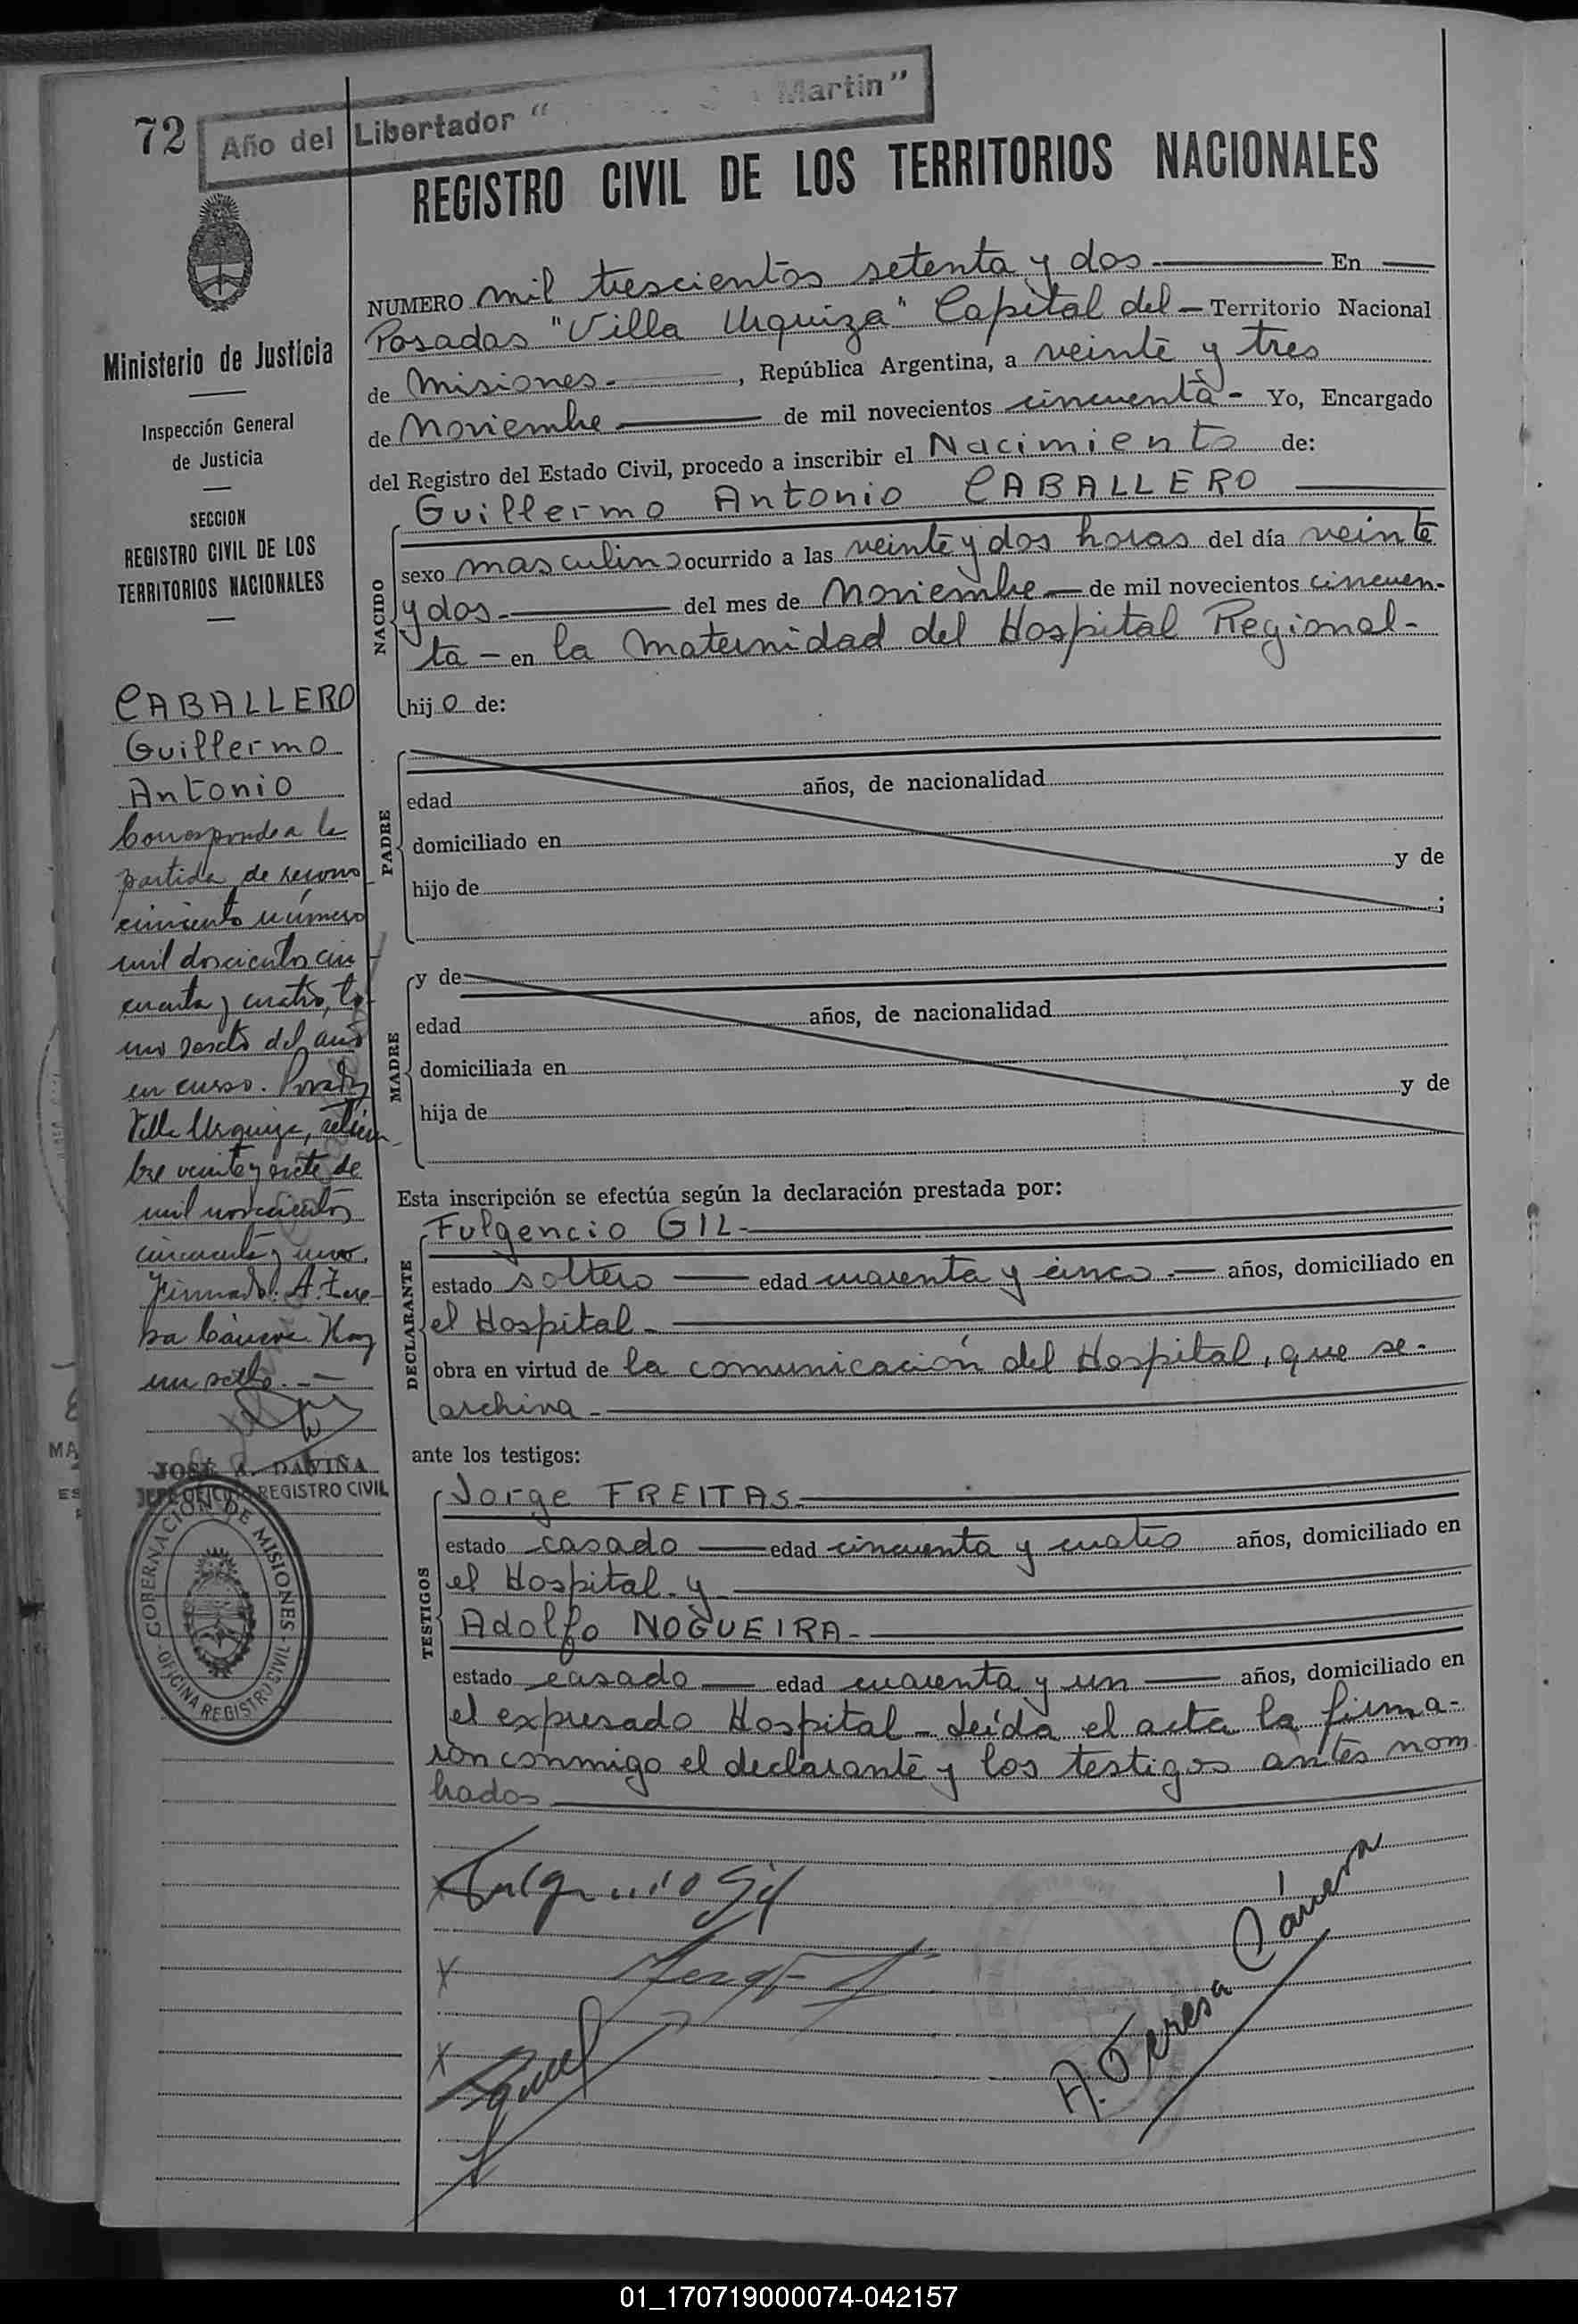 72
Año del Libertador " Martin"
REGISTRO CIVIL DE LOS TERRITORIOS NACIONALES
Ministerio de Justicia
Inspección General
de Justicia
SECCION
REGISTRO CIVIL DE LOS
TERRITORIOS NACIONALES
NUMERO mil trescientos setenta y dos - En
Posadas "Villa Urquiza" Capital del - Territorio Nacional
de Misiones.-, República Argentina, a veinte y tres
de Noviembre de mil novecientos cincuenta - Yo, Encargado
del Registro del Estado Civil, procedo a inscribir el Nacimiento de:
Guillermo Antonio CABALLERO
NACIDO
sexo masculino ocurrido a las veinte y dos horas del día veinte
y dos.- del mes de Noviembre - de mil novecientos cincuen-
ta - en la Maternidad del Hospital Regional-
hijo de:
PADRE
edad años, de nacionalidad
domiciliado en
hijo de y de
;
MADRE
y de
edad años, de nacionalidad
domiciliada en
hija de y de
Esta inscripción se efectúa según la declaración prestada por:
DECLARANTE
Fulgencio GIL-
estado soltero - edad cuarenta y cinco.- años, domiciliado en
el Hospital-
obra en virtud de la comunicación del Hospital, que se-
archiva-
ante los testigos:
TESTIGOS
Jorge FREITAS-
estado casado - edad cincuenta y cuatro años, domiciliado en
el Hospital. y
Adolfo NOGUEIRA-
estado casado - edad cuarenta y un - años, domiciliado en
el expresado Hospital - Leída el acta la firma-
ron conmigo el declarante y los testigos antes nom
brados
Fulgencio Gil
A. Teresa Cánera
CABALLERO
Guillermo
Antonio
Corresponde a la
partida de recono
cimiento número
mil doscientos cin
cuenta y cuatro, to-
mo sexto del año
en curso. Posadas
Villa Urquiza, setiem
bre veinte y siete de
mil novecientos
cincuenta y uno.
Firmado: A. Tere-
sa Cánera. Hay
un sello.-
JOSÉ A. DAVIÑA
JEFE OFICINA REGISTRO CIVIL
GOBERNACION DE MISIONES
OFICINA REGISTRO CIVIL
01_170719000074-042157